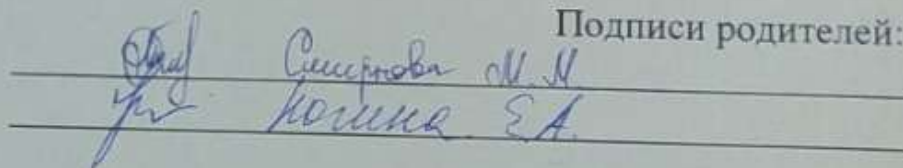 Подписи родителей:
Смирнова М.М
Е.А.